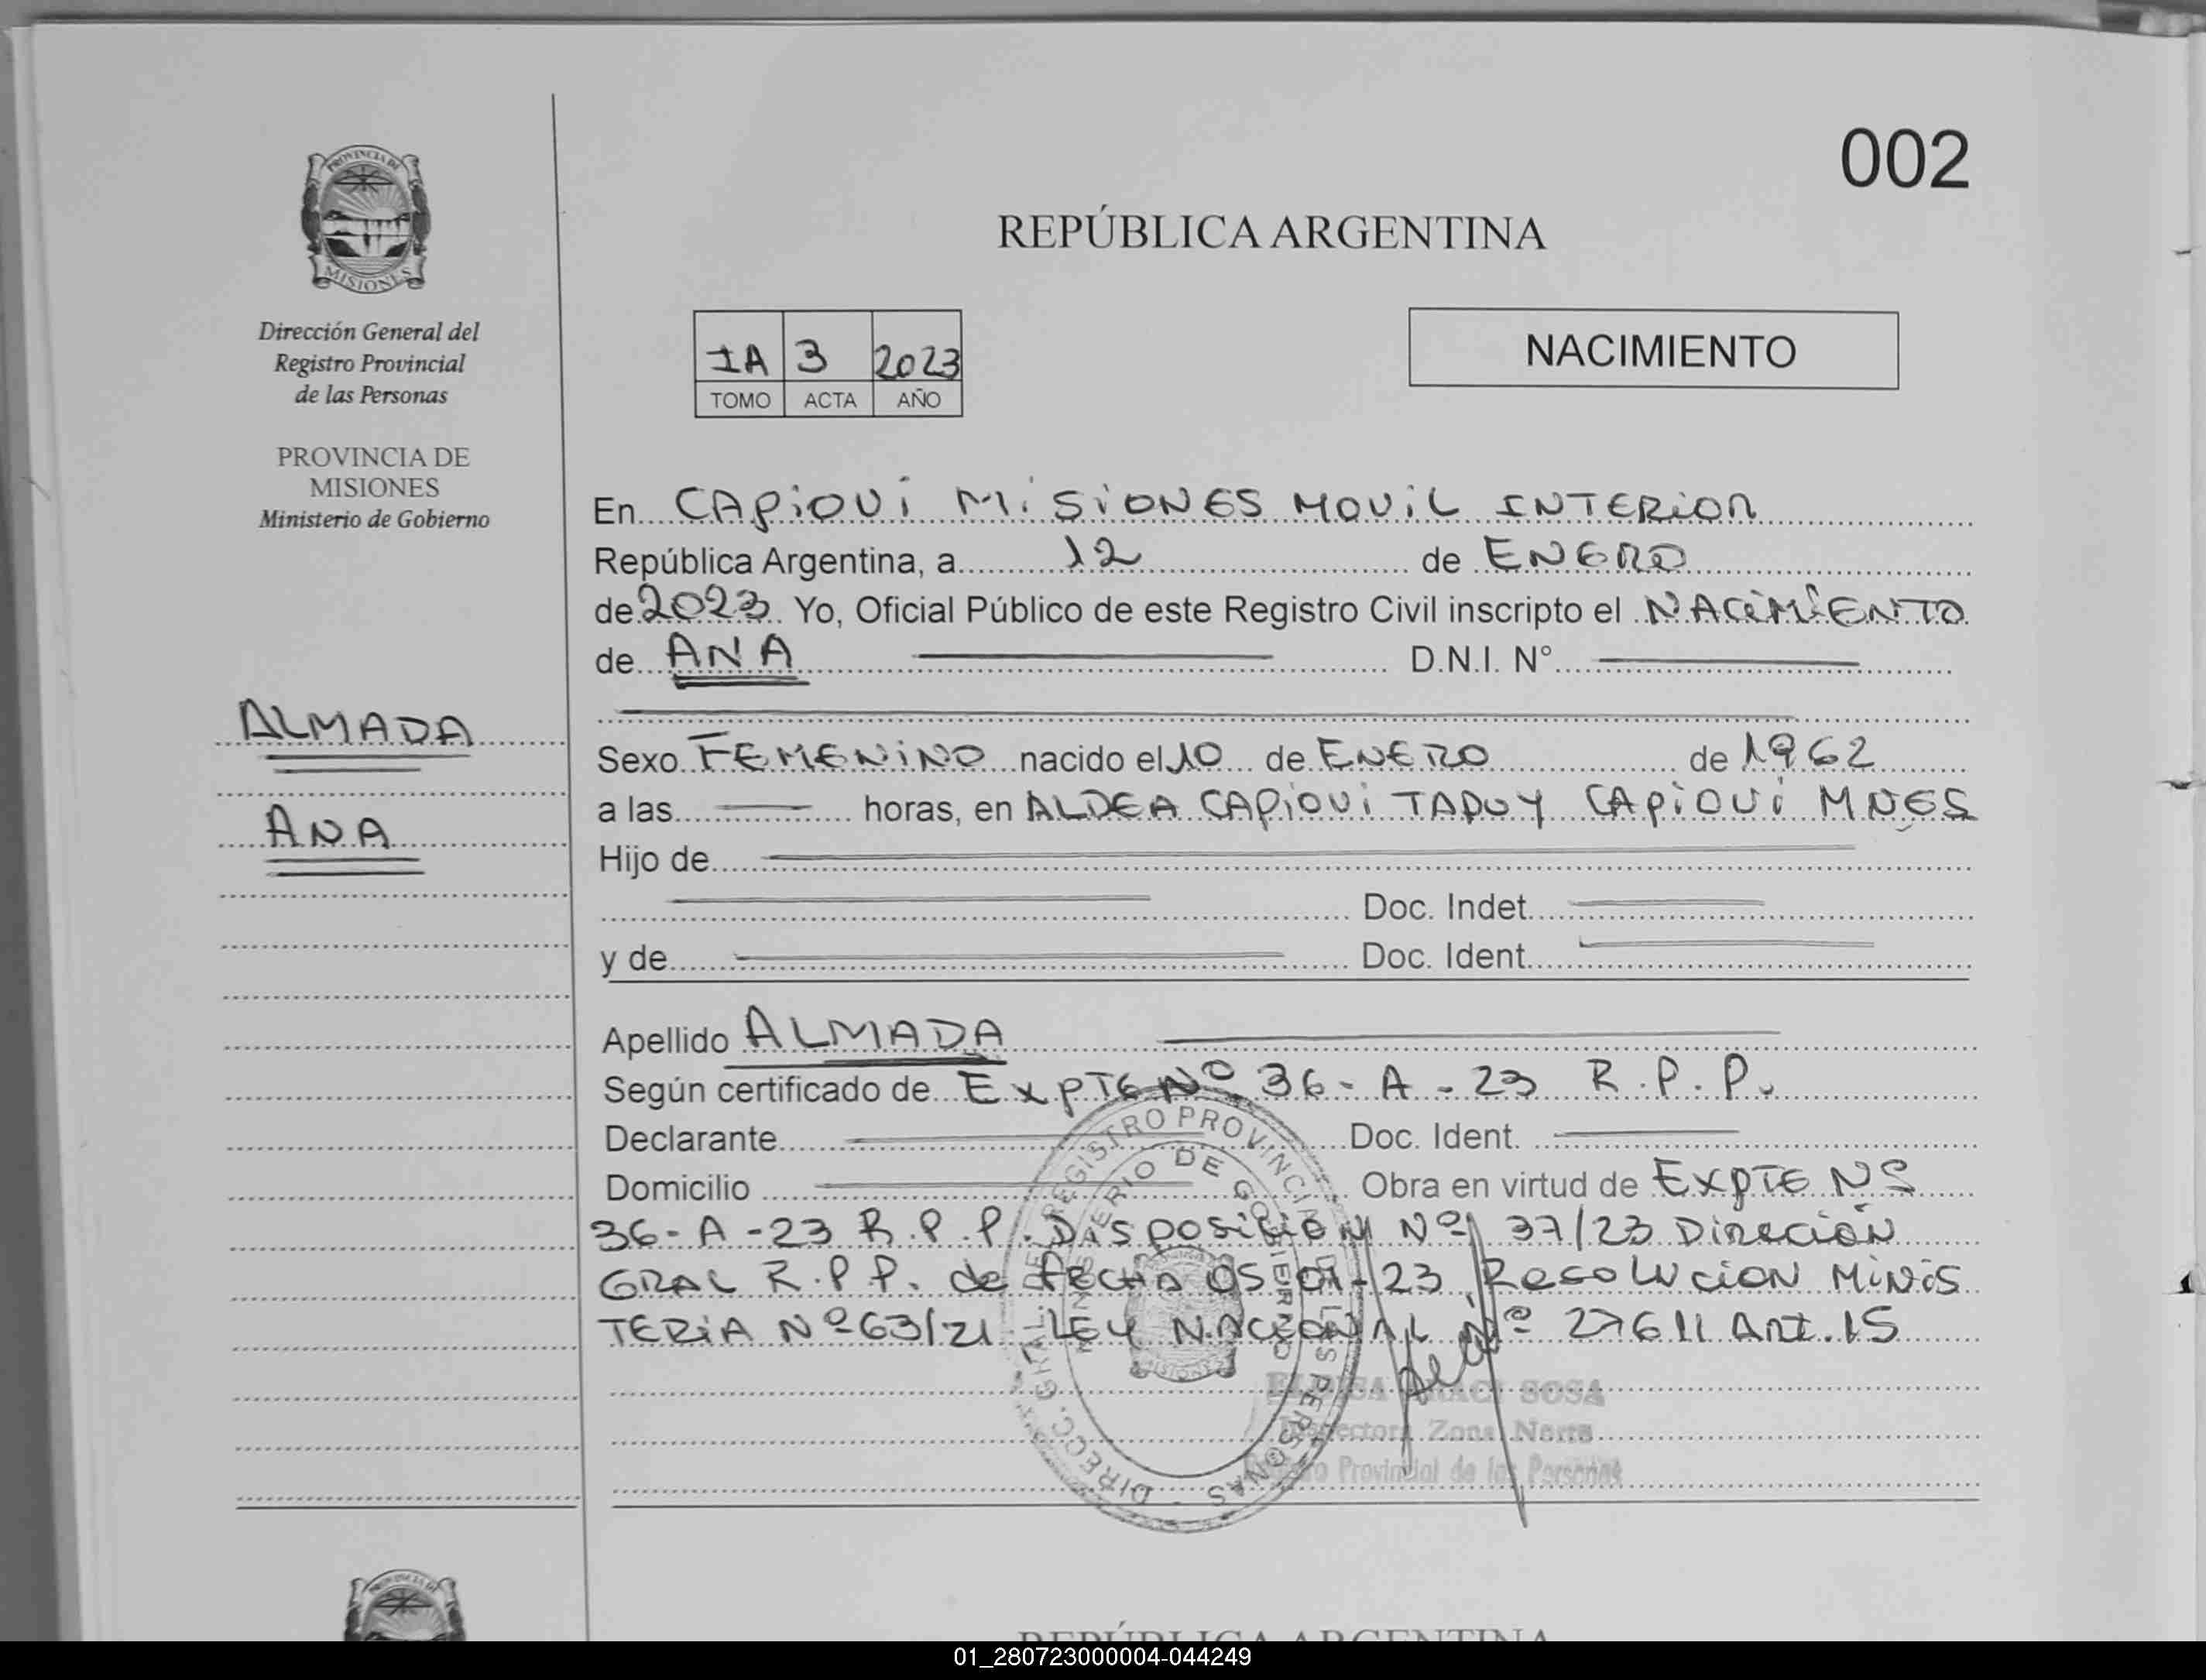 002
PROVINCIA DE
MISIONES
Dirección General del
Registro Provincial
de las Personas
PROVINCIA DE
MISIONES
Ministerio de Gobierno
ALMADA
ANA
REPÚBLICA ARGENTINA
IA 3 2023
TOMO ACTA AÑO
NACIMIENTO
En CAPiOVi MiSiONES MOViL INTERiOR
República Argentina, a 12 de ENERO
de 2023 Yo, Oficial Público de este Registro Civil inscripto el NACiMiENTO
de ANA D.N.I. N°
Sexo FEMENiNO nacido el 10 de ENERO de 1962
a las horas, en ALDEA CAPiOVi TAPUY CAPiOVi MNES
Hijo de
Doc. Indet.
y de Doc. Ident.
Apellido ALMADA
Según certificado de EXPTE Nº 36-A-23 R.P.P.
Declarante Doc. Ident.
Domicilio Obra en virtud de EXPTE Nº
36-A-23 R.P.P. DiSPOSiCiÓN Nº 37/23 DiRECiÓN
GRAL R.P.P. de FECHA 05-01-23 RESOLUCiON MiNiS
TERiA Nº 63/21 - LEY NACIONAL Nº 27611 ART.15
DIRECC. GRAL. DE REGISTRO PROVINCIAL DE LAS PERSONAS -
MINISTERIO DE GOBIERNO
MISIONES
SOSA
Inspectora Zona Norte
Registro Provincial de las Personas
REPÚBLICA ARGENTINA
01_280723000004-044249